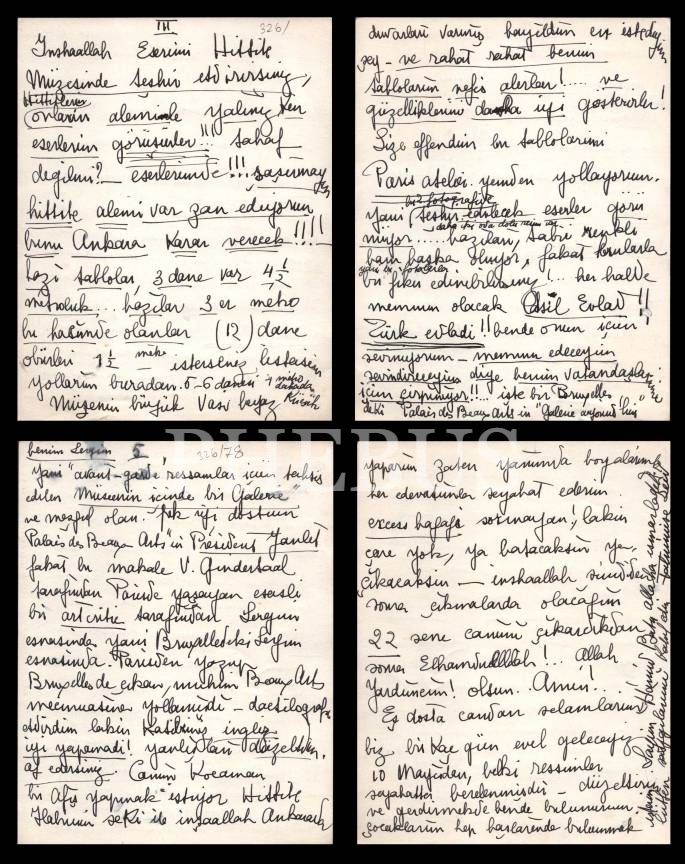 III
326/
Inshaallah Eserimi Hittite
Müzesinde teşhir etdirirsiniz,
Hittitlerin
onların alemimle yalınız ken
eserlerim görüsürler!!! tuhaf
değilmi?— eserlerimde!!! şaşırmayın
hittite alemi var zan ediyorum
bunu Ankara Karar verecek!!!!
bazi tablolar, 3 dane var 4 1/2
metroluk... bazilar 3 er metro
bu hacimde olanlar (12) dane
obürleri 1 1/2 metre isterseniz listesini
yollarım buradan. 5-6 danesi 1 metro
Müzenin büyük Vasi beyaz
duvarları varmış bayıldım en istediğim
şey - ve rahat rahat benim
tablolarım nefis alerlar!... ve
güzelliklerini daha iyi gösterirler!
Size effendim bu tablolarımi
Paris atelie yeniden yollayorum.
bir fotografik
yani teshir edilecek eserler görü
nüyor... bazıları, tabii renkli
bam başka oluyor, fakat bunlarla
bir fikir edinebilirsiniz!... her halde
memnun olacak Asil Evlad!!
Türk evladi!! bende onun için
sevinıyorum - memnun edeceyim
sevindireceyim diye benim vatandaşları
için çırpınıyor!!... işte bir Bruxelles
deki Palais des Beaux Arts in "Galerie
benim Sergim 5
326/78
yani "avant-garde" ressamlar için tahsis
edilen Musenin içinde bir Galerie"
ve meşgul olan. Pek iyi dostum
Palais des Beaux Arts" in Président
fakat bu makale V. Gindertael
tarafından Pariste yaşayan esaslı
bir art critic tarafından Sergim
esnasında yani Bruxelledeki Sergim
esnasında. Paristen yazıp
Bruxelles de çıkan, mühim Beaux Arts
mecmuasına yollamişdi - dactilografi
etdirdim lakin Katibimiz ingliz
iyi yapamadi! yanlışları düzeltdim,
af edersiniz. Canım Kocaman
bir Afiş yapmak istiyor Hittite
Habrimin şekli ile inşaallah Ankarada
yaparım zaten yanımda boyalarım
her edevatımla seyahat ederim
excess bagage sormayan! lakin
çare yok, ya batacaksın ya
çıkacaksın — inshaallah şimdiden
sonra çıkmalarda olacağım
22 sene canım çıkardıkdan
sonra Elhamdulillah!... Allah
Yardımcım! olsun.. Amin!.
Eş dosta candan selamlarım
biz bir kaç gün evel geleceyiz
10 Mayisden, belki ressimler
seyahatta berelenmişdi - düzeltirim
ve gerdirmekde bende bulunurum
çocukların hep başlarında bulunmak